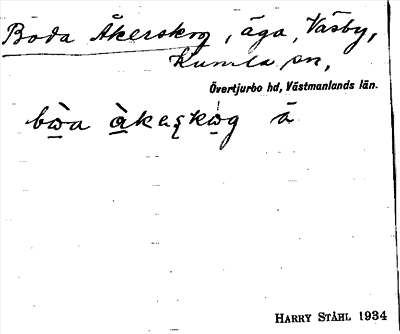 Boda Åkerskog, äga, Väsby,
Kumla sn,
Övertjurbo hd, Västmanlands län.
HARRY STÅHL 1934